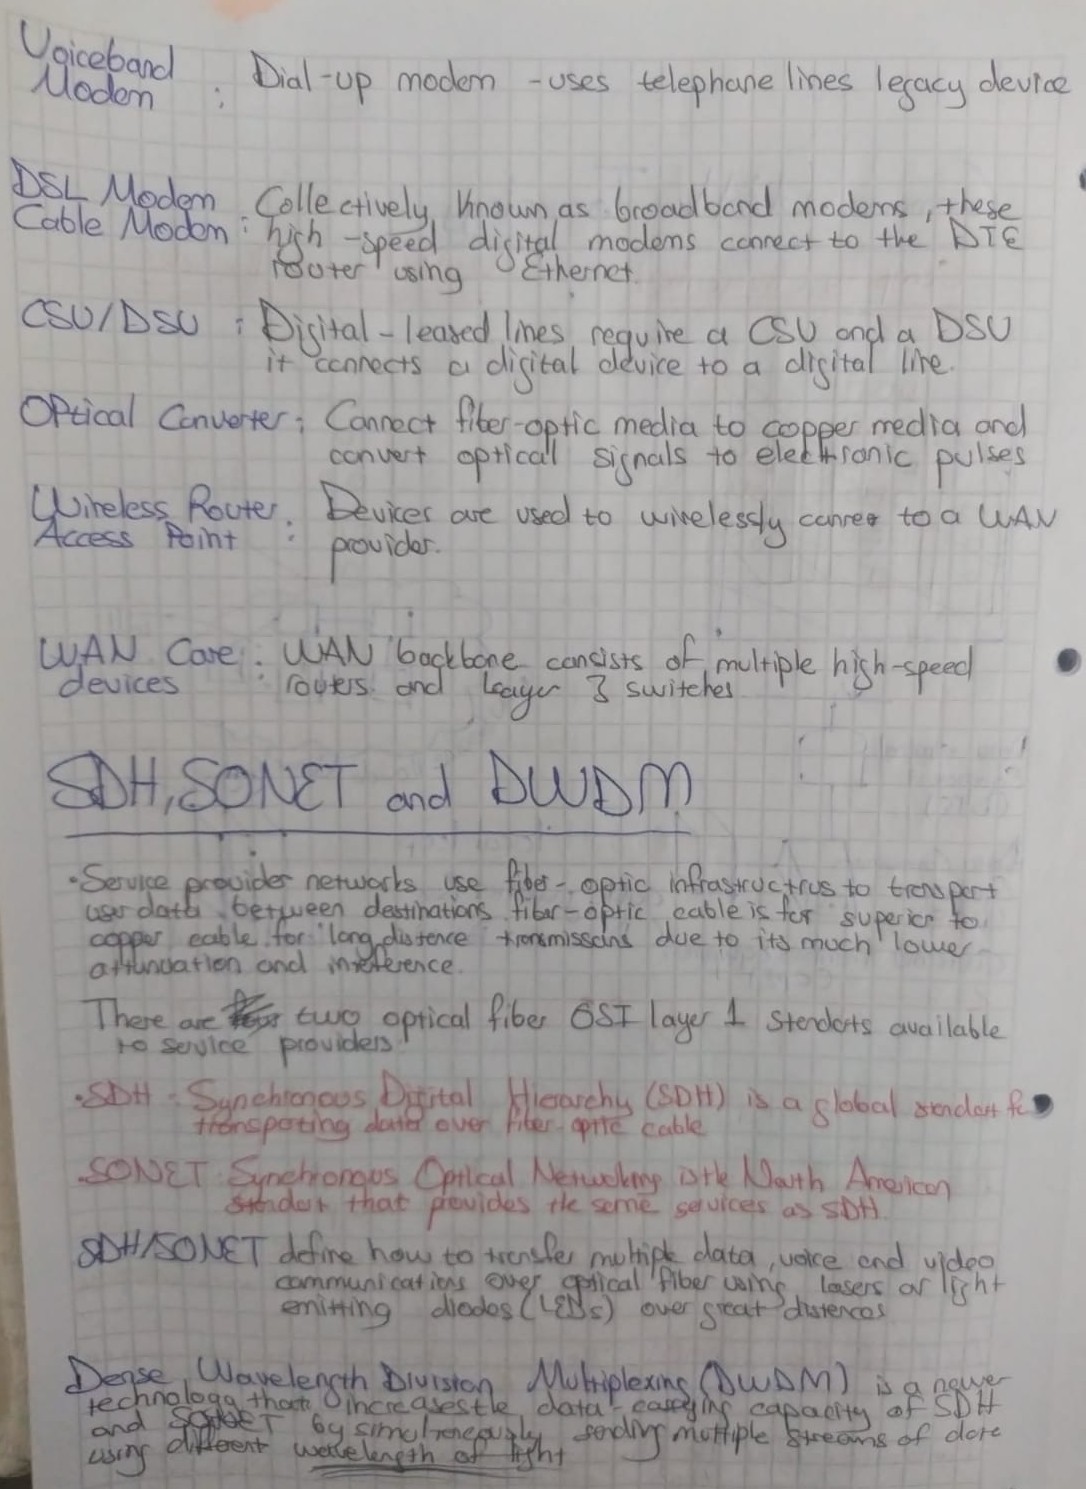 Voiceband
Modem : Dial-up modem - uses telephone lines legacy device
DSL Modem
Cable Modem : Collectively, known as broadband modems, these
high-speed digital modems connect to the DTE
router using Ethernet.
CSU/DSU : Digital-leased lines require a CSU and a DSU
it connects a digital device to a digital line.
Optical Converter : Connect fiber-optic media to copper media and
convert optical signals to electronic pulses
Wireless Router
Access Point : Devices are used to wirelessly connect to a WAN
provider.
WAN Core
devices : WAN backbone consists of multiple high-speed
routers and Leayer 3 switches
SDH, SONET and DWDM
• Service provider networks use fiber-optic infrastructrus to transport
user data between destinations fiber-optic cable is far superior to
copper cable for long distence transmisseins due to its much lower
attunuation and inteference.
There are two optical fiber OSI layer 1 stenderts available
to service providers:
• SDH : Synchronous Digital Hierarchy (SDH) is a global stendart fo
transporting data over fiber-optic cable
• SONET : Synchronous Optical Networking is the North American
stendart that provides the same services as SDH.
SDH/SONET define how to transfer multiple data, voice and video
communications over optical fiber using lasers or light
emitting diodos (LEDs) over great distences
Dense Wavelength Division Multiplexing (DWDM) is a newer
technology that increases the data-carrying capacity of SDH
and SONET by simulteneously sending multiple streams of data
using different wavelength of light